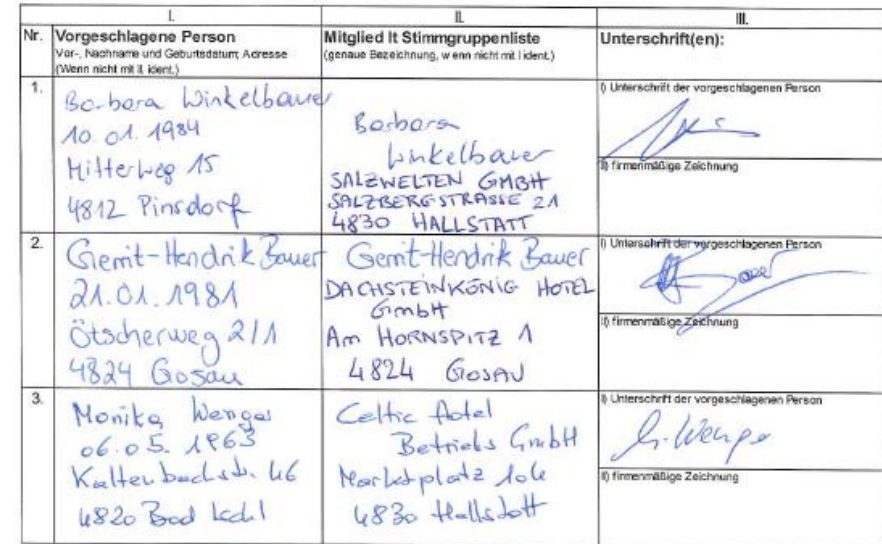 I. II. III.
Nr. Vorgeschlagene Person Mitglied lt Stimmgruppenliste Unterschrift(en):
Vor-, Nachname und Geburtsdatum; Adresse (genaue Bezeichnung, wenn nicht mit I ident.)
(Wenn nicht mit II. ident.)
1.
Barbara Winkelbauer
10.01.1984
Mitterweg 15
4812 Pinsdorf
Barbara
Winkelbauer
SALZWELTEN GMBH
SALZBERGSTRASSE 21
4830 HALLSTATT
I) Unterschrift der vorgeschlagenen Person
II) firmenmäßige Zeichnung
2.
Gerrit-Hendrik Bauer
21.01.1981
Ötscherweg 2/1
4824 Gosau
Gerrit-Hendrik Bauer
DACHSTEINKÖNIG HOTEL
GmbH
Am HORNSPITZ 1
4824 GOSAU
I) Unterschrift der vorgeschlagenen Person
Bauer
II) firmenmäßige Zeichnung
3.
Monika Wenger
06.05.1963
Kaltenbachstr. 46
4820 Bad Ischl
Celtic Hotel
Betriebs GmbH
Marktplatz 104
4830 Hallstatt
I) Unterschrift der vorgeschlagenen Person
M. Wenger
II) firmenmäßige Zeichnung